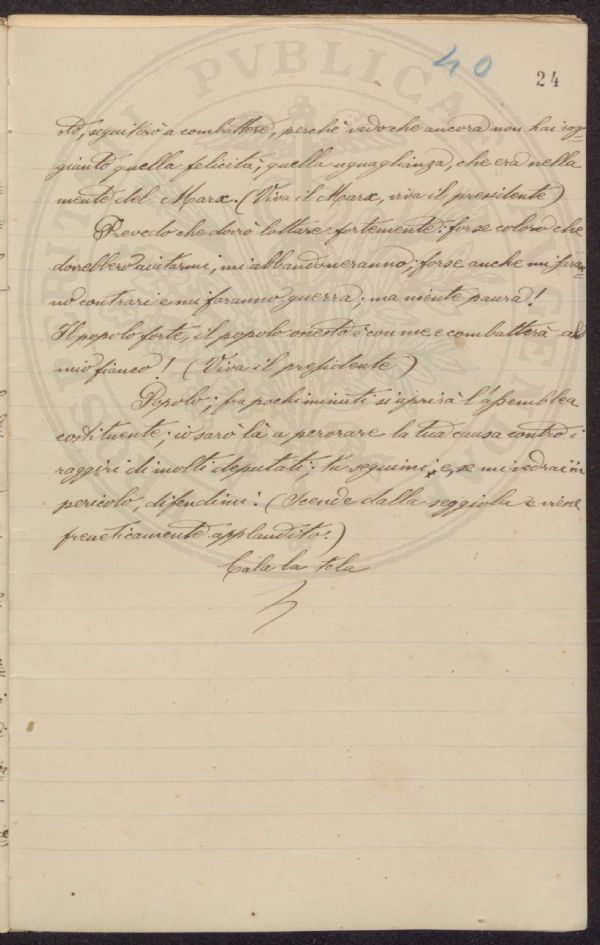 40
24
rò, seguiterò a combattere, perchè vedo che ancora non hai rag-
giunto quella felicità, quella uguaglianza, che era nella
mente del Marx. (Viva il Marx, viva il presidente)
Prevedo che dovrò lottare fortemente: forse coloro che
dovrebbero aiutarmi, mi abbandoneranno; forse anche mi saran-
no contrari e mi faranno guerra; ma niente paura!
Il popolo forte, il popolo onesto è con me e combatterà al
mio fianco! (Viva il presidente)
Popolo; fra pochi minuti si aprirà l'assemblea
costituente; io sarò là a perorare la tua causa contro i
raggiri di molti deputati; tu seguimi e, se mi vedrai in
pericolo, difendimi! (Scende dalla seggiola e viene
freneticamente applaudito.)
Cala la tela